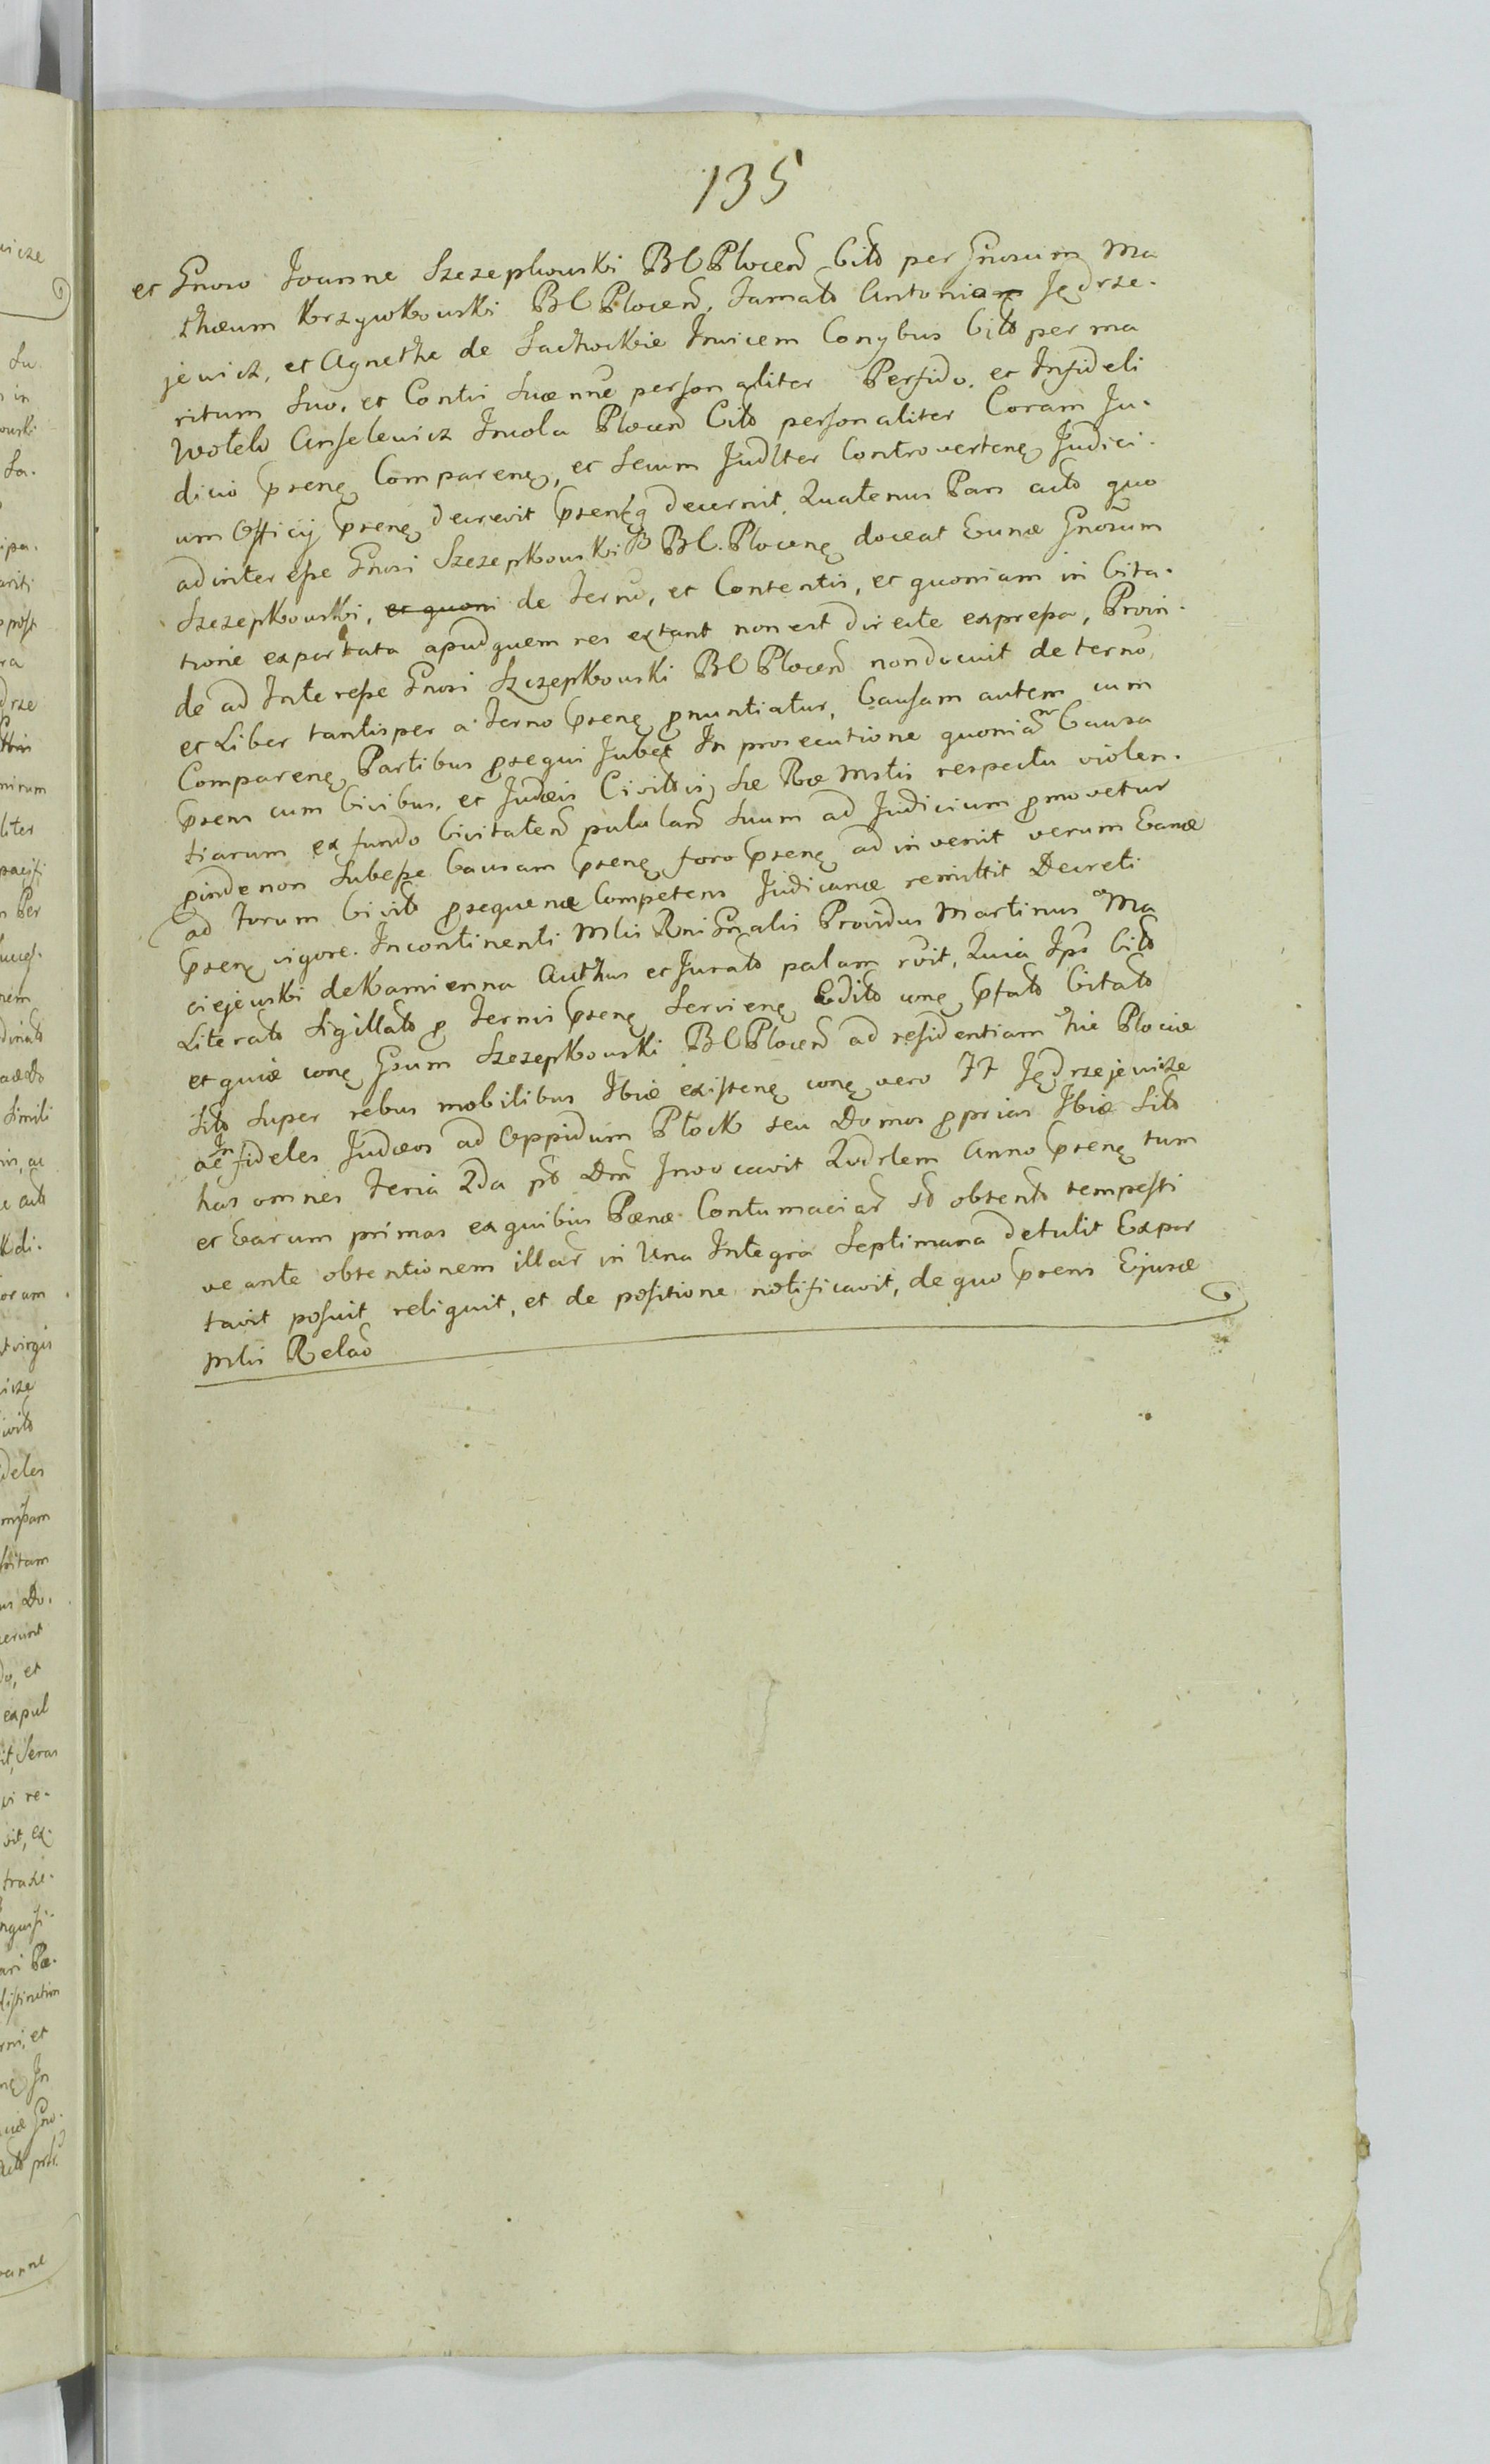 135
et Gnoso Joanne Szczepkowski BC Plocen Citto per Gnosum Ma
thæum Krzywkowski BC Plocen, Famato Antonio Jędrze-
jewicz, et Agnethe de Sachockie Invicem Conybus Citto per ma
ritum Suo, et Contli Suæ nne personaliter Perfido, et Infideli
Wotelo Anselewicz Incola Plocen Citto personaliter Coram Ju-
dicio Psenę Comparenę, et Secum Judlter Controvertenę Judici-
um Officij Psenę decrevit Psentq decernit, Quatenus Pars acto quo
ad interesse Gnosi Szczepkowski B BC. Plocenę doceat Eunæ Gnosum
Szczepkowski, et quoni de Terno, et Contentis, et quoniam in Cita-
tione exportata apud quem res extant non est directe expressa, Proin-
de ad Interesse Gnosi Szczepkowski BC Plocen non docuit de terno,
et Liber tantisper a Terno Psenę pnuntiatur, Causam autem cum
Comparenę Partibus psequi Jubet In prosecutione quoniam Causa
Psens cum Civibus, et Judæis Civittis Sæ Ræ Mttis respectu violen-
tiarum ex fundo Civitaten pululan suum ad Judicium pmovetur
pinde non Subesse Causam Psenę foro Psenę adinvenit verum Eanæ
ad Forum Civile psequenæ Competens Judicanæ remittit Decreti
Psenę vigore. Incontinenti Mlis Rni Gnalis Providus Martinus Ma
ciejewski de Kamienna Authus et Jurato palam rvit, Quia Ips Citto
Literato Sigillato p Ternis Psenę Servienę Edito cunę Pfato Citato
et quiæ conę Gsum Szczepkowski BC Plocen ad residentiam hic Plociæ
Sito Super rebus mobilibus Ibiæ existenę conę vero FF Jędrzejewicze
ac Infideles Judæos ad Oppidum Płock seu Domos pprias Ibiæ Sito
has omnes Feria 2da po Dm Invocavit Qudrlem Anno Psenę tum
et Earum primas ex quibus Pænæ Contumaciar So obtento tempesti
ve ante obtentionem illar in Una Integra Septimana detulit Expor
tavit posuit reliquit, et de positione notificavit, de quo Psens Ejusæ
Mlis Relao